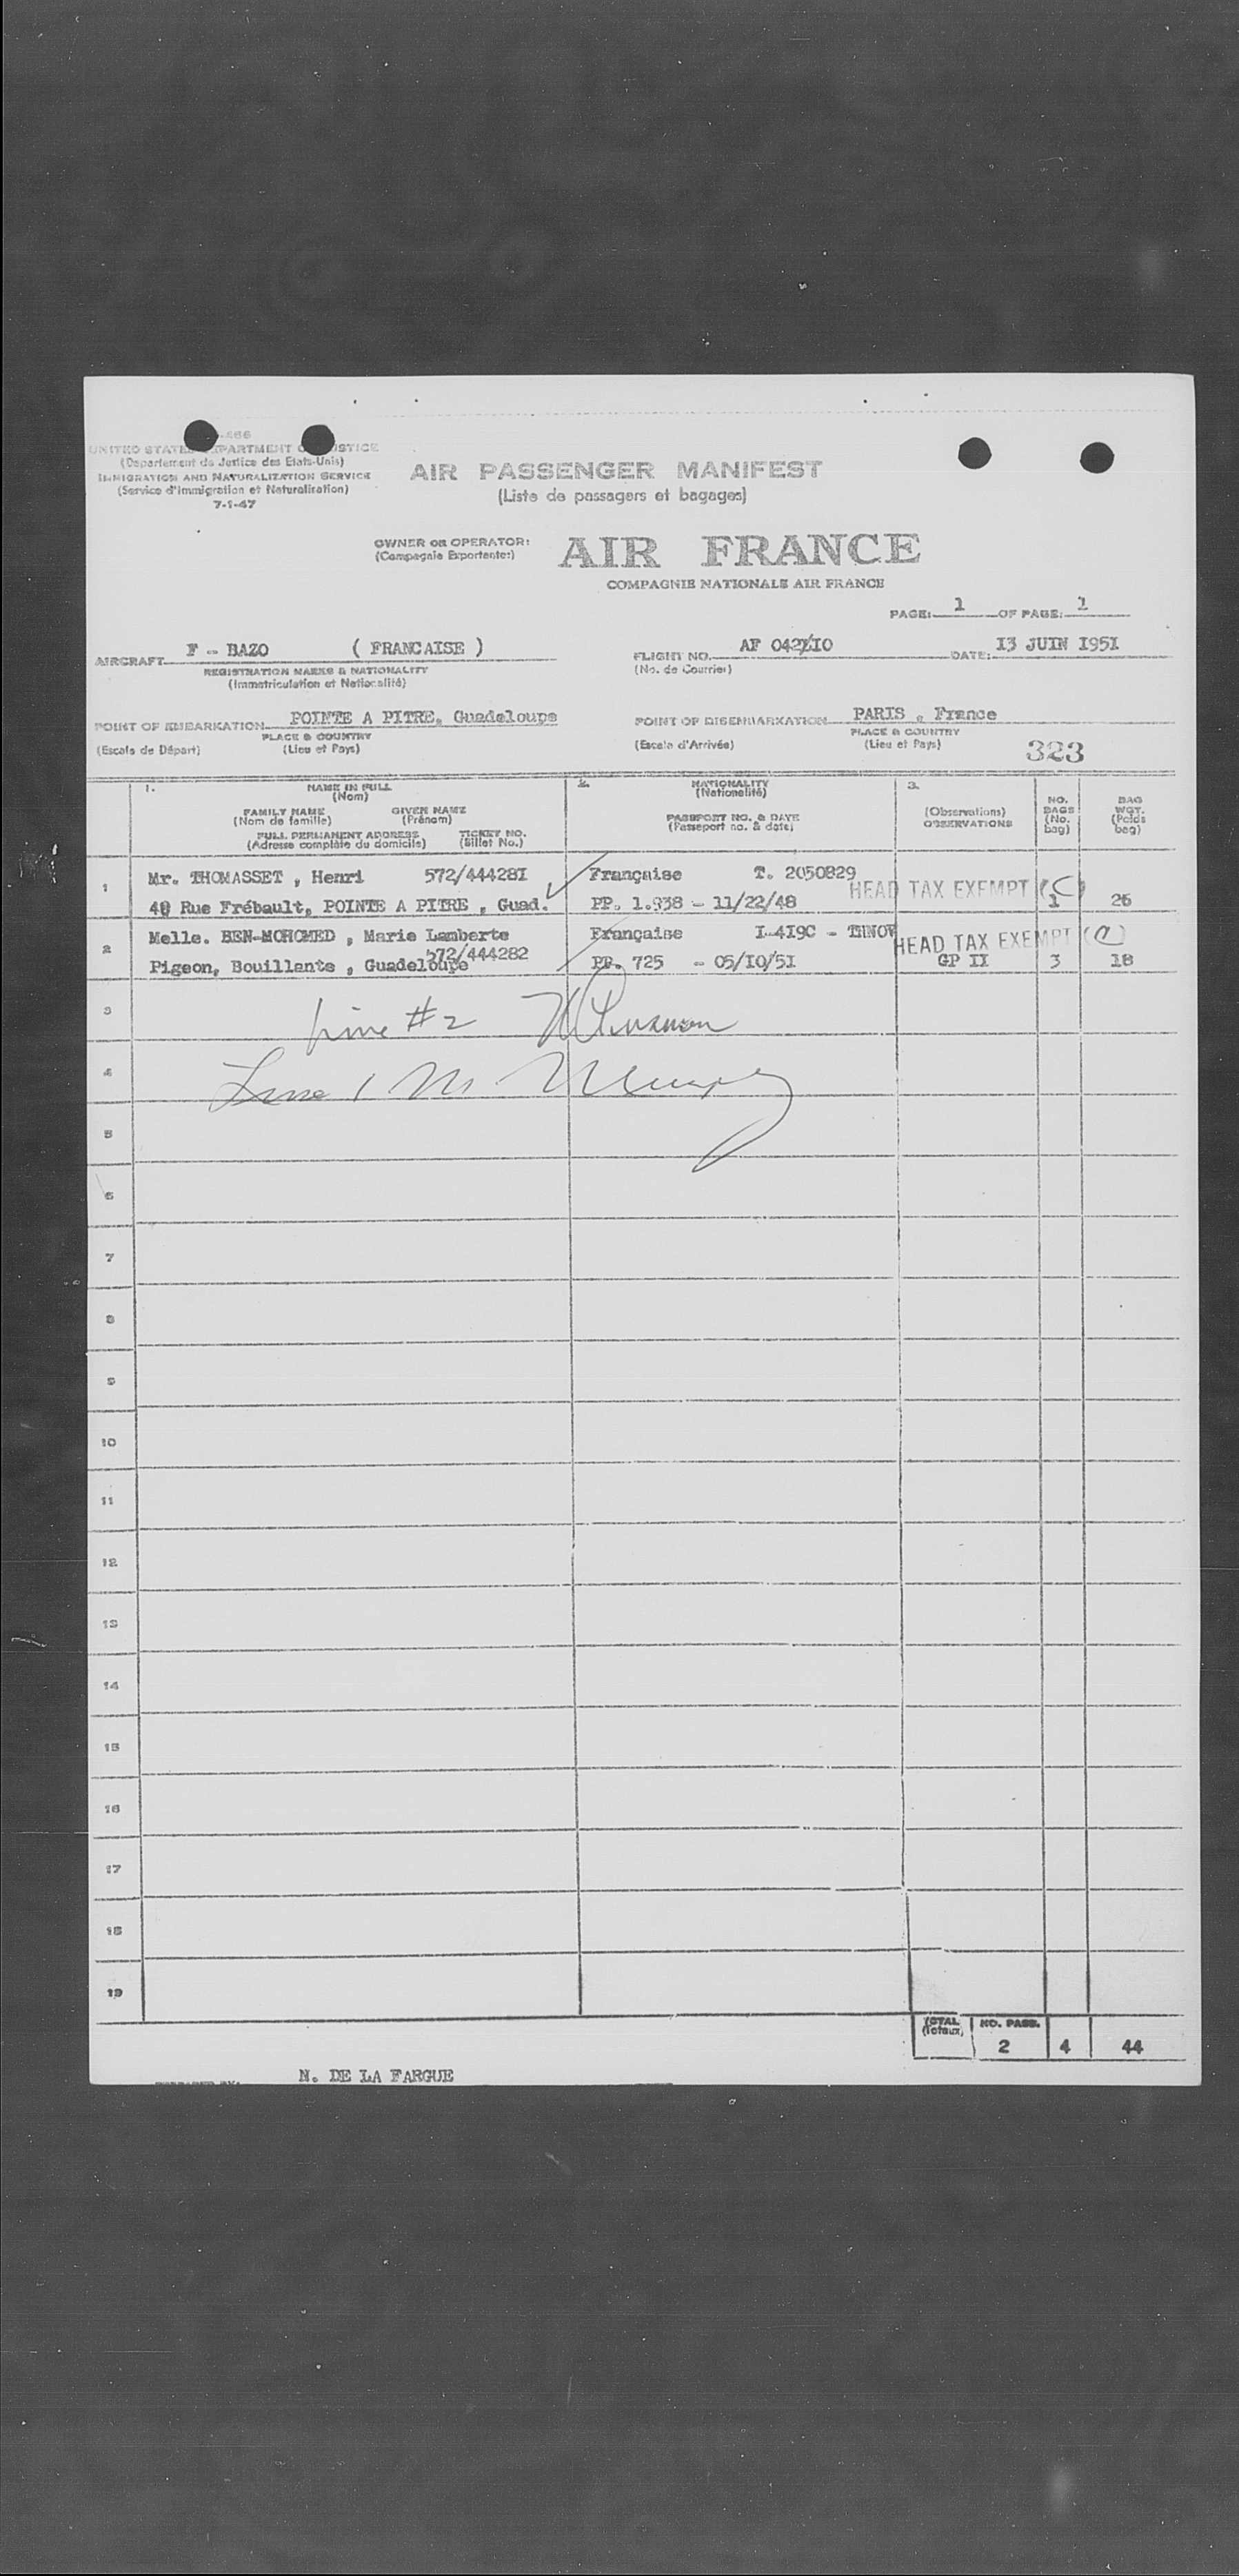 -466
UNITED STATES DEPARTMENT OF JUSTICE
(Departement de Justice des Etats-Unis)
IMMIGRATION AND NATURALIZATION SERVICE
(Service d'Immigration et Naturalisation)
7-1-47
AIR PASSENGER MANIFEST
(Liste de passagers et bagages)
OWNER OR OPERATOR:
(Compagnie Exportente:)
AIR FRANCE
COMPAGNIE NATIONALE AIR FRANCE
PAGE: 1 OF PAGE: 1
AIRCRAFT F - BAZO ( FRANCAISE )
REGISTRATION MARKS & NATIONALITY
(Immatriculation et Nationalité)
FLIGHT NO. AF 042/IO
(No. de Courrier)
DATE: I3 JUIN I95I
POINT OF EMBARKATION POINTE A PITRE, Guadeloupe
PLACE & COUNTRY
(Escale de Départ) (Lieu et Pays)
POINT OF DISEMBARKATION PARIS , France
PLACE & COUNTRY
(Escale d'Arrivée) (Lieu et Pays)
323
1. NAME IN FULL
(Nom)
FAMILY NAME GIVEN NAME
(Nom de famille) (Prénom)
FULL PERMANENT ADDRESS TICKET NO.
(Adresse complète du domicile) (Billet No.)
2. NATIONALITY
(Nationalité)
PASSPORT NO. & DATE
(Passeport no. & date)
3.
(Observations)
OBSERVATIONS
NO. BAGS (No. bag)
BAG WGT. (Poids bag)
1 Mr. THOMASSET , Henri 572/44428I Française T. 2050829
HEAD TAX EXEMPT (C)
48 Rue Frébault, POINTE A PITRE , Guad. PP. 1.938 - 11/22/48 1 26
2 Melle. BEN-MOHOMED , Marie Lamberte Française I-4I9C -
HEAD TAX EXEMPT (C)
572/444282
Pigeon, Bouillante , Guadeloupe PP. 725 - 05/IO/5I GP II 3 18
3 Line #2
4 Line 1 M
5
6
7
8
9
10
11
12
13
14
15
16
17
18
19
TOTAL (Totaux) NO. PASS. 2 4 44
N. DE LA FARGUE